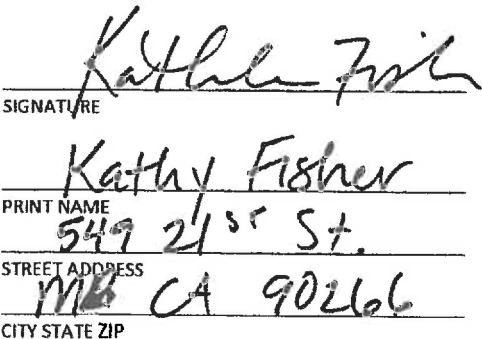 Kathleen Fisher
SIGNATURE
Kathy Fisher
PRINT NAME
549 21st St.
STREET ADDRESS
MB CA 90266
CITY STATE ZIP